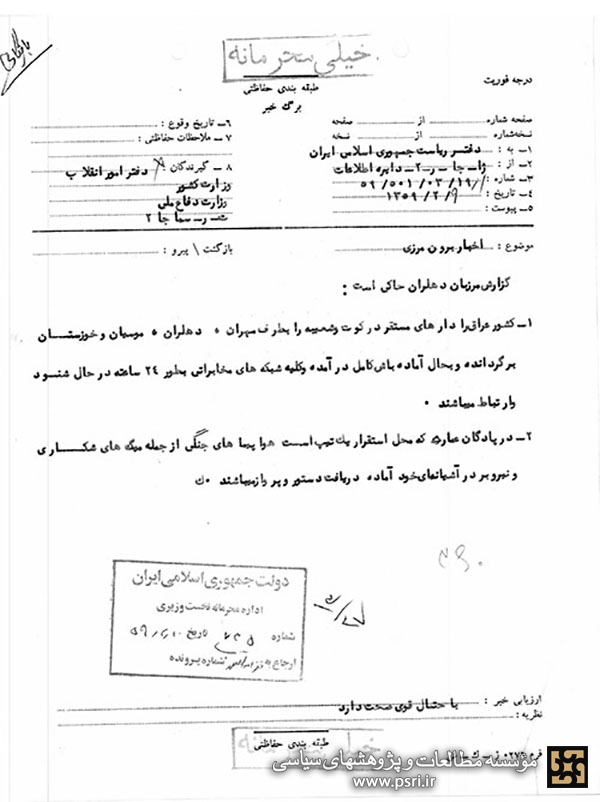 بایگانی
خیلی محرمانه
طبقه بندی حفاظتی
برگ خبر
درجه فوریت
صفحه شماره از صفحه
نسخه شماره از نسخه
۱ـ به : دفتر ریاست جمهوری اسلامی ایران
۲ـ از : ژا ـ جا ـ ر۲ ـ دایره اطلاعات
۳ـ شماره : ۵۹/۵۰۱/۰۳/۱۹/
۴ـ تاریخ : ۱۳۵۹/۲/۹
۵ـ پیوست :
۶ـ تاریخ وقوع :
۷ـ ملاحظات حفاظتی :
۸ـ گیرندگان : دفتر امور انقلاب
وزارت کشور
وزارت دفاع ملی
سماجا ۲
موضوع : اخبار برون مرزی
بازگشت \ پیرو :
گزارش مرزبان دهلران حاکی است :
۱ـ کشور عراق رادارهای مستقر در کوت و شعیبیه را بطرف مهران ، دهلران ، موسیان و خوزستان
برگردانده و بحال آماده باش کامل در آمده و کلیه شبکه های مخابراتی بطور ۲۴ ساعته در حال شنود
و ارتباط میباشند ۰
۲ـ در پادگان عماره که محل استقرار یک تیپ است هواپیما های جنگی از جمله میگ های شکاری
و نیروبر در آشیانه‌ای خود آماده دریافت دستور و پرواز میباشند ۰ک
دولت جمهوری اسلامی ایران
اداره محرمانه نخست وزیری
شماره تاریخ
ارجاع به شماره پرونده
ارزیابی خبر : با احتمال قوی صحت دارد
نظریه :
طبقه بندی حفاظتی
خیلی محرمانه
مؤسسه مطالعات و پژوهشهای سیاسی
www.psri.ir